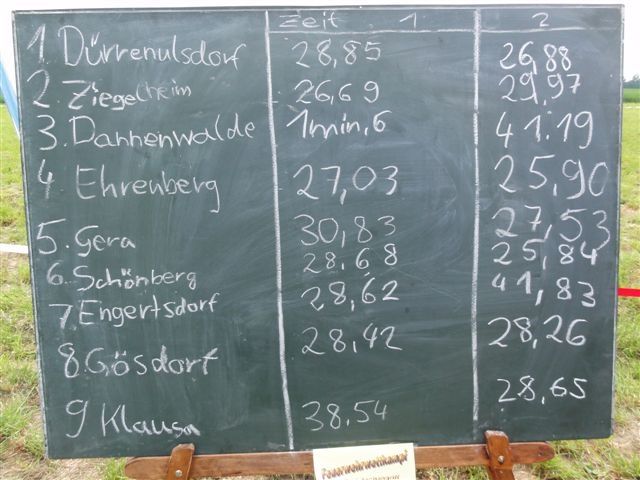 Zeit 1 2
1 Dürrenulsdorf 28,85 26,88
2. Ziegelheim 26,69 29,97
3. Dannenwalde 1min,6 41.19
4 Ehrenberg 27,03 25,90
5. Gera 30,83 27,53
6. Schönberg 28,68 25,84
7. Engertsdorf 28,62 41,83
8. Gösdorf 28,42 28,26
9 Klausa 38,54 28,65
Feuerwehrwettkampf